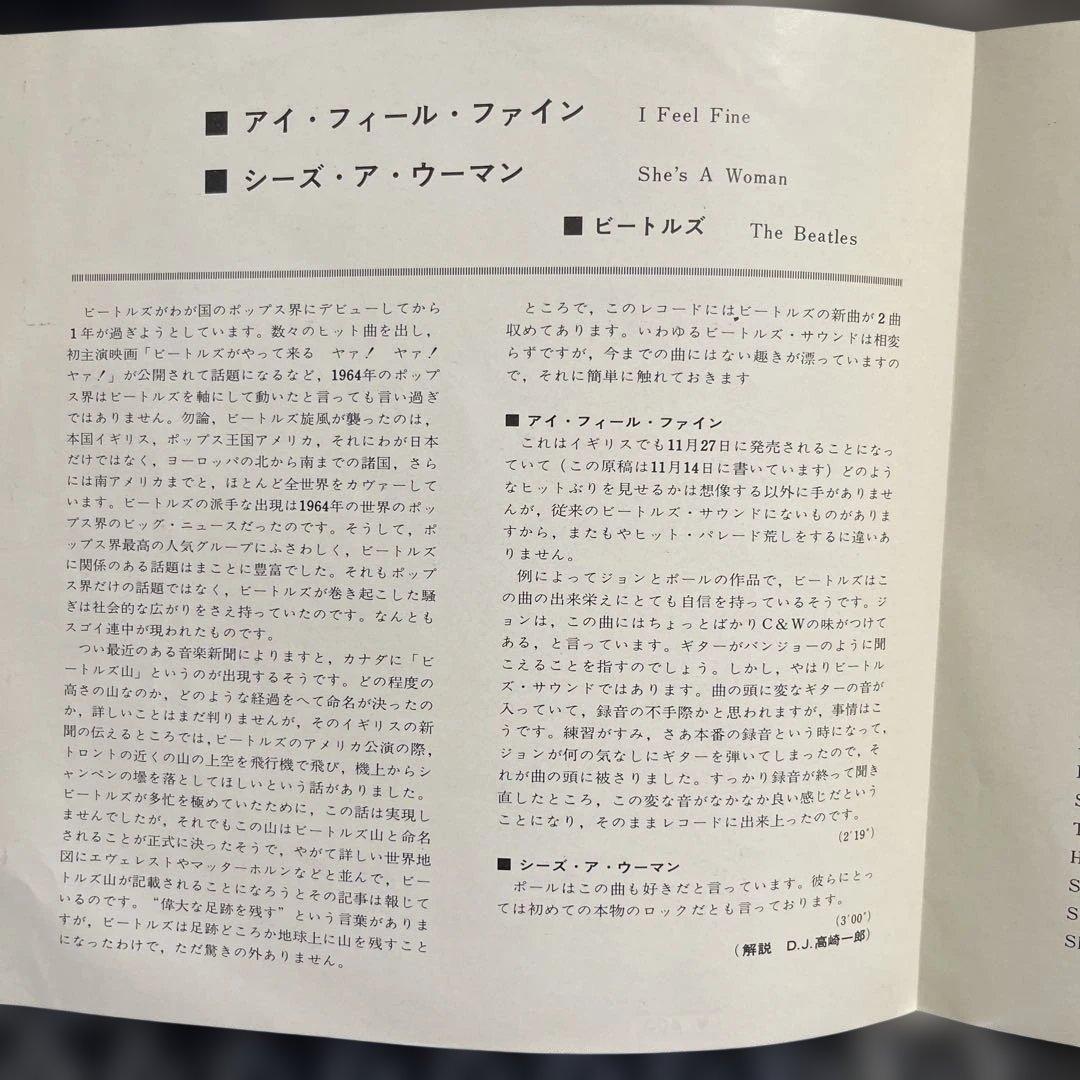 ■ アイ・フィール・ファイン I Feel Fine
■ シーズ・ア・ウーマン She's A Woman
■ ビートルズ The Beatles
ビートルズがわが国のポップス界にデビューしてから
1年が過ぎようとしています。数々のヒット曲を出し，
初主演映画「ビートルズがやって来る　ヤァ！　ヤァ！
ヤァ！」が公開されて話題になるなど，1964年のポップ
ス界はビートルズを軸にして動いたと言っても言い過ぎ
ではありません。勿論，ビートルズ旋風が襲ったのは，
本国イギリス，ポップス王国アメリカ，それにわが日本
だけではなく，ヨーロッパの北から南までの諸国，さら
には南アメリカまでと，ほとんど全世界をカヴァーして
います。ビートルズの派手な出現は1964年の世界のポッ
プス界のビッグ・ニュースだったのです。そうして，ポ
ップス界最高の人気グループにふさわしく，ビートルズ
に関係のある話題はまことに豊富でした。それもポップ
ス界だけの話題ではなく，ビートルズが巻き起こした騒
ぎは社会的な広がりをさえ持っていたのです。なんとも
スゴイ連中が現われたものです。
つい最近のある音楽新聞によりますと，カナダに「ビ
ートルズ山」というのが出現するそうです。どの程度の
高さの山なのか，どのような経過をへて命名が決ったの
か，詳しいことはまだ判りませんが，そのイギリスの新
聞の伝えるところでは，ビートルズのアメリカ公演の際，
トロントの近くの山の上空を飛行機で飛び，機上からシ
ャンペンの壜を落としてほしいという話がありました。
ビートルズが多忙を極めていたために，この話は実現し
ませんでしたが，それでもこの山はビートルズ山と命名
されることが正式に決ったそうで，やがて詳しい世界地
図にエヴェレストやマッターホルンなどと並んで，ビー
トルズ山が記載されることになろうとその記事は報じて
いるのです。“偉大な足跡を残す”という言葉がありま
すが，ビートルズは足跡どころか地球上に山を残すこと
になったわけで，ただ驚きの外ありません。
ところで，このレコードにはビートルズの新曲が2曲
収めてあります。いわゆるビートルズ・サウンドは相変
らずですが，今までの曲にはない趣きが漂っていますの
で，それに簡単に触れておきます
■ アイ・フィール・ファイン
これはイギリスでも11月27日に発売されることになっ
ていて（この原稿は11月14日に書いています）どのよう
なヒットぶりを見せるかは想像する以外に手がありませ
んが，従来のビートルズ・サウンドにないものがありま
すから，またもやヒット・パレード荒しをするに違いあ
りません。
例によってジョンとポールの作品で，ビートルズはこ
の曲の出来栄えにとても自信を持っているそうです。ジ
ョンは，この曲にはちょっとばかりC&Wの味がつけて
ある，と言っています。ギターがバンジョーのように聞
こえることを指すのでしょう。しかし，やはりビートル
ズ・サウンドではあります。曲の頭に変なギターの音が
入っていて，録音の不手際かと思われますが，事情はこ
うです。練習がすみ，さあ本番の録音という時になって，
ジョンが何の気なしにギターを弾いてしまったので，そ
れが曲の頭に被さりました。すっかり録音が終って聞き
直したところ，この変な音がなかなか良い感じだという
ことになり，そのままレコードに出来上ったのです。
(2′19″)
■ シーズ・ア・ウーマン
ポールはこの曲も好きだと言っています。彼らにとっ
ては初めての本物のロックだとも言っております。
(3′00″)
（解説　D.J.高崎一郎）